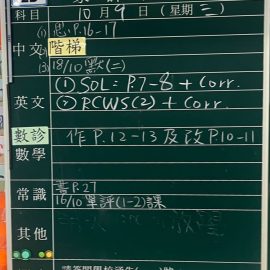 科目 10月9日 (星期三)
(1) P.16-17
中文 階梯
(3) 18/10 默(二)
英文 ① SOL: P.7-8 + Corr.
② RCWS(2) + Corr.
數診 作 P.12-13 及改 P10-11
數學
常識 書 P.27
16/10 單評(1-2)課
其他